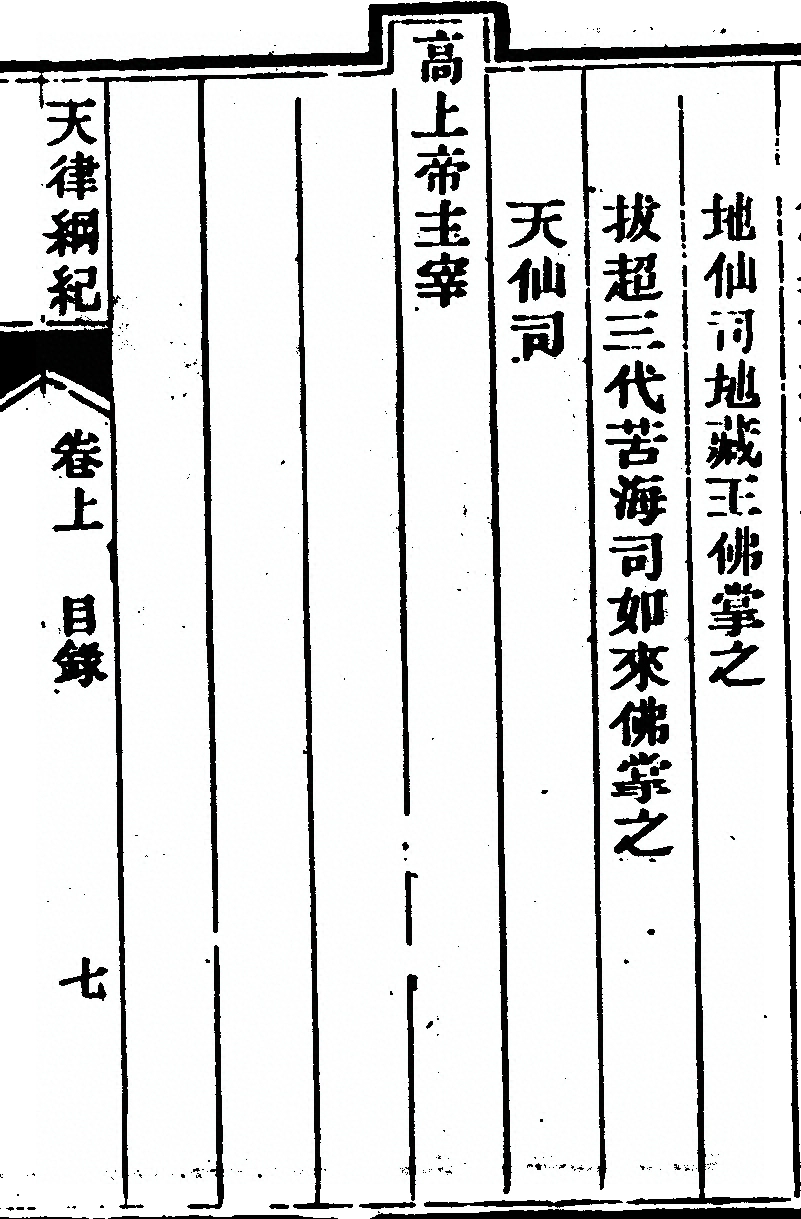 地仙司地藏王佛掌之
拔超三代苦海司如來佛掌之
天仙司
高上帝主宰
天律綱紀 卷上 目錄 七